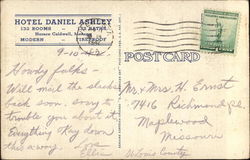 HOTEL DANIEL ASHLEY
132 ROOMS 132 BATHS
Horace Caldwell, Manager
MODERN FIREPROOF
POST CARD
9-10-42
Howdy folks -
Will mail the slacks
back soon. Sorry to
trouble you about it.
Everything Okay down
this a way. Love
Ellen
Mr. & Mrs. H. Ernst
7416 Richmond pl
Maplewood
Missouri
St Louis County